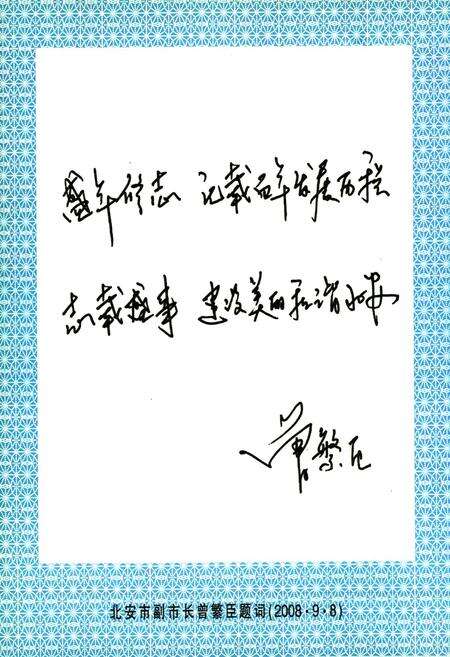 盛年修志 记载百年发展历程
志载盛事 建设美的和谐北安
曾繁臣
北安市副市长曾繁臣题词(2008·9·8)